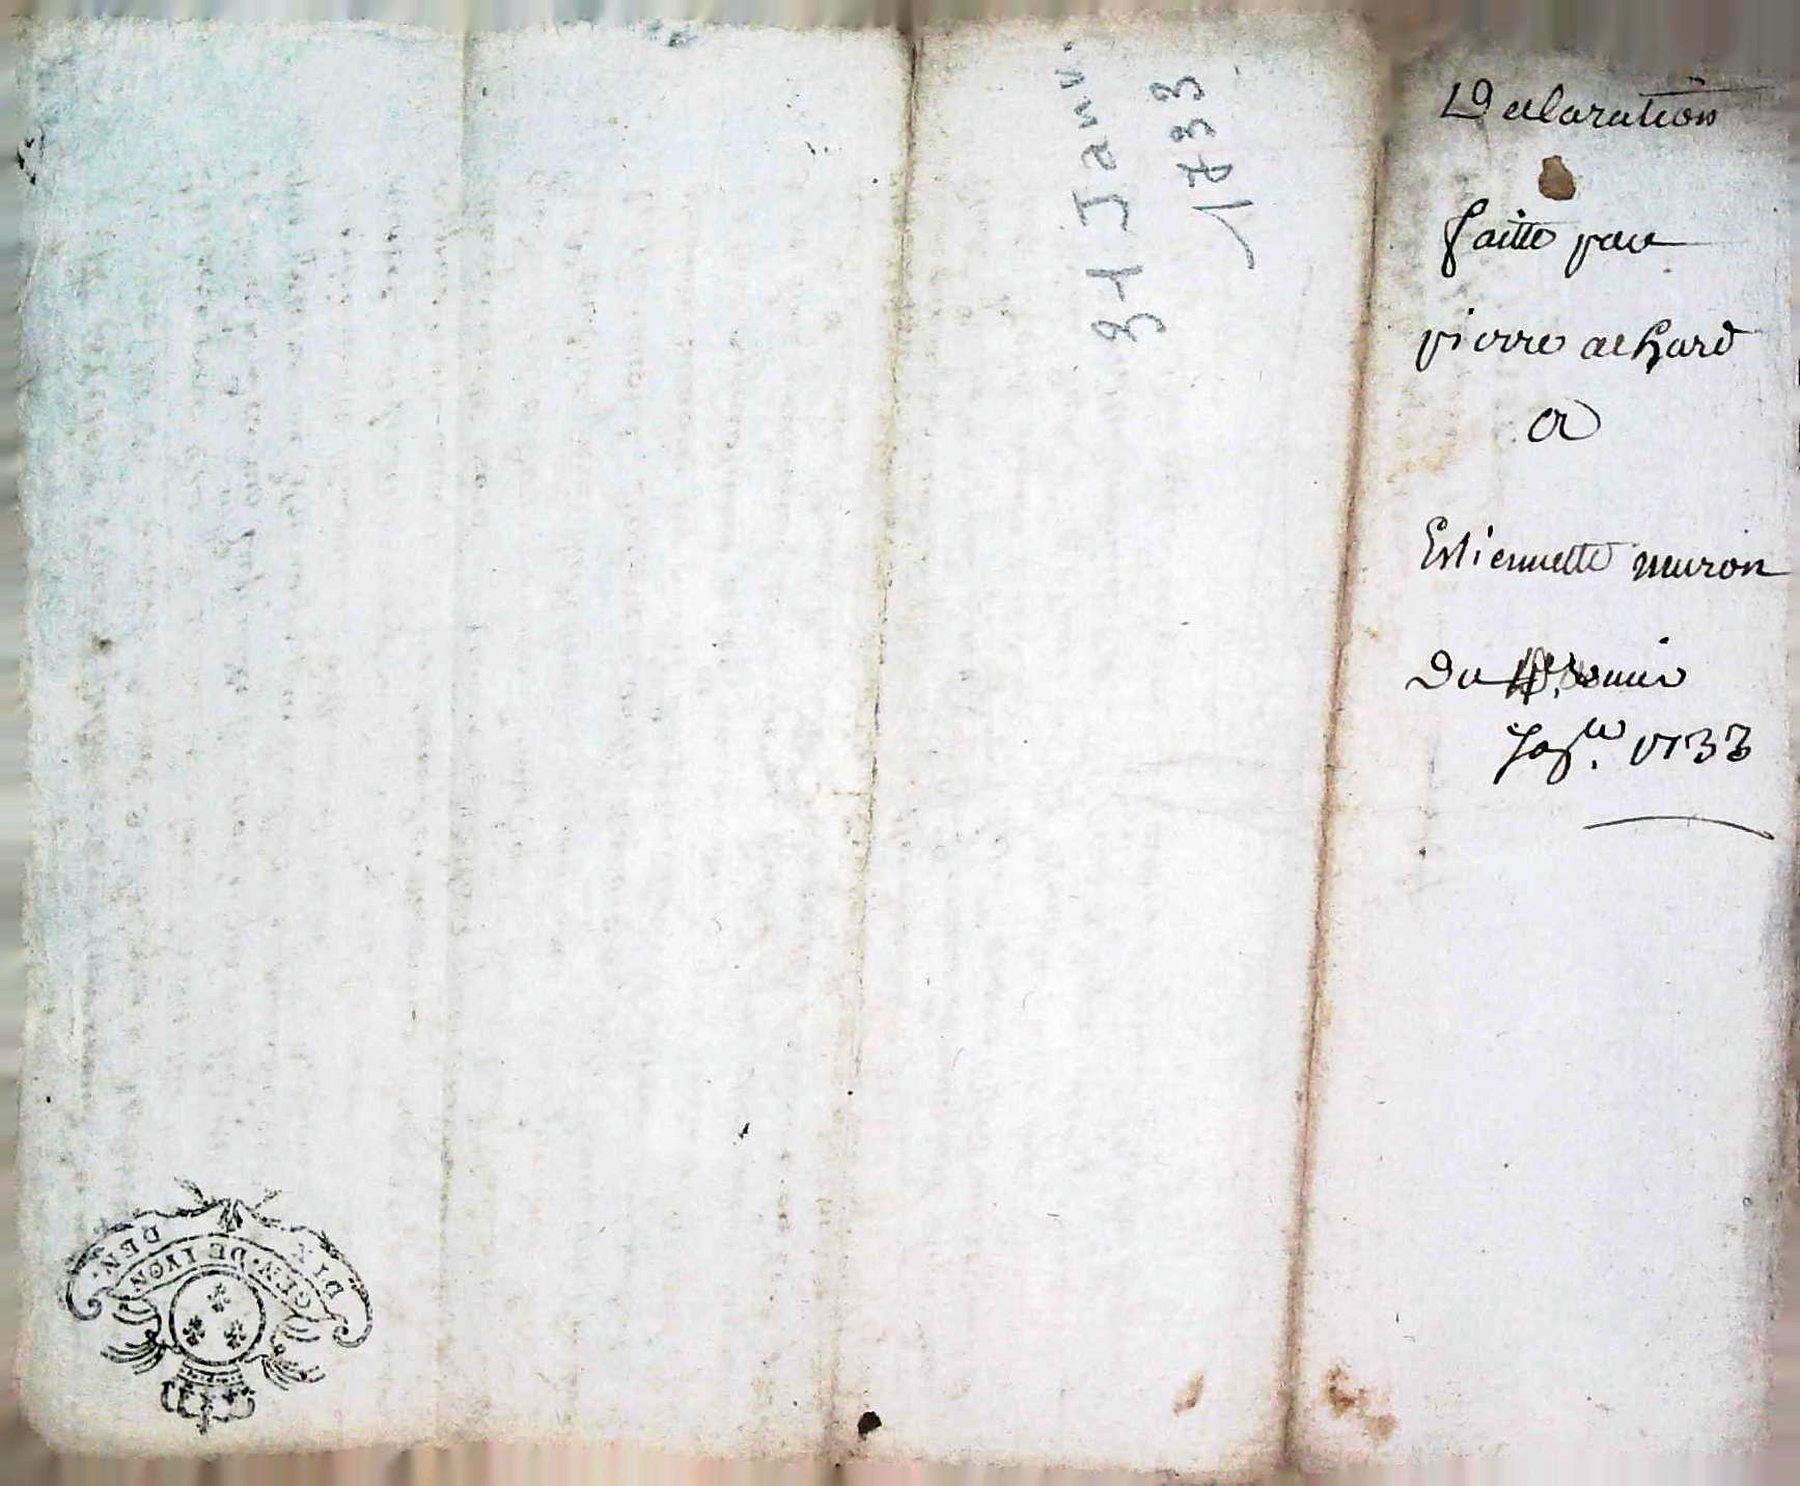 31 Janv.
1733
Declaration
faitte par
pierre achard
a
Estiennette muron
Du
1733
DIX DEN DEN.
GEN. DE LYON.